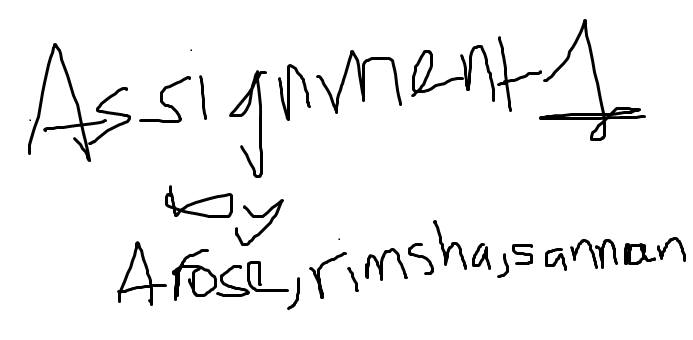 Assignment 1
by
Arose, rimsha, sannan